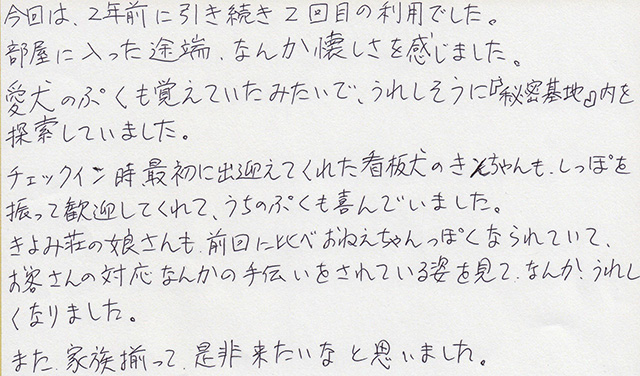 今回は、2年前に引き続き2回目の利用でした。
部屋に入った途端、なんか懐しさを感じました。
愛犬のぷくも覚えていたみたいで、うれしそうに『秘密基地』内を
探索していました。
チェックイン時、最初に出迎えてくれた看板犬のきんちゃんも、しっぽを
振って歓迎してくれて、うちのぷくも喜んでいました。
きよみ荘の娘さんも、前回に比べおねえちゃんっぽくなられていて、
お客さんの対応なんかの手伝いをされている姿を見て、なんか、うれし
くなりました。
また、家族揃って、是非来たいなと思いました。